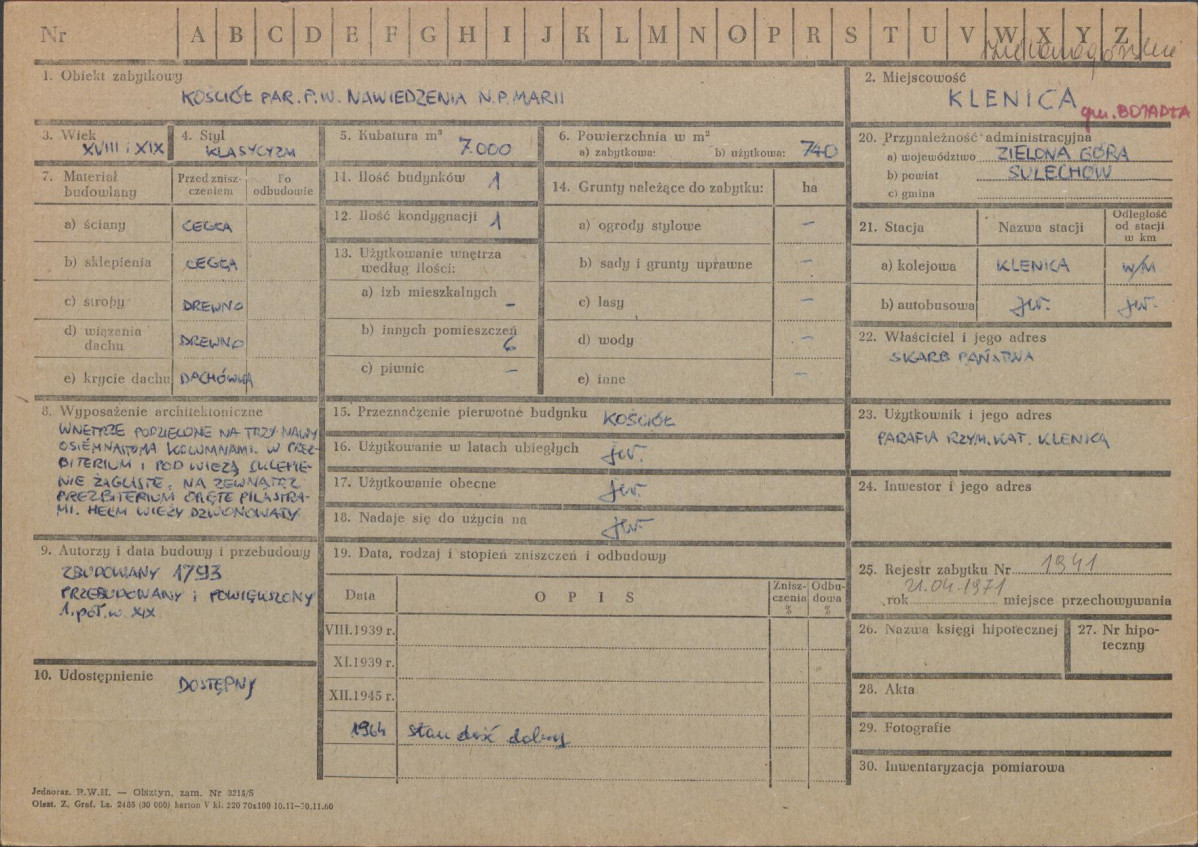 Nr A B C D E F G H I J K L M N O P R S T U V W X Y Z
1. Obiekt zabytkowy
KOŚCIÓŁ PAR. P.W. NAWIEDZENIA N.P. MARII
2. Miejscowość
KLENICA
gm. BOJADŁA
3. Wiek
XVIII i XIX
4. Styl
KLASYCYZM
5. Kubatura m³
7.000
6. Powierzchnia w m²
a) zabytkowa: b) użytkowa: 740
7. Materiał budowlany
Przed zniszczeniem
Po odbudowie
a) ściany CEGŁA
b) sklepienia CEGŁA
c) stropy DREWNO
d) wiązania dachu DREWNO
e) krycie dachu DACHÓWKA
8. Wyposażenie architektoniczne
WNĘTRZE PODZIELONE NA TRZY NAWY
OSIEMNASTOMA KOLUMNAMI. W PREZ-
BITERIUM I POD WIEŻĄ SKLEPIE-
NIE ŻAGLISTE, NA ZEWNĄTRZ
PREZBITERIUM OPIĘTE PILASTRA-
MI. HEŁM WIEŻY DZWONOWATY
9. Autorzy i data budowy i przebudowy
ZBUDOWANY 1793
PRZEBUDOWANY i POWIĘKSZONY
1. poł. w. XIX
10. Udostępnienie
DOSTĘPNY
11. Ilość budynków 1
12. Ilość kondygnacji 1
13. Użytkowanie wnętrza
według ilości:
a) izb mieszkalnych –
b) innych pomieszczeń
6
c) piwnic –
14. Grunty należące do zabytku: ha
a) ogrody stylowe –
b) sady i grunty uprawne –
c) lasy –
d) wody –
e) inne –
15. Przeznaczenie pierwotne budynku KOŚCIÓŁ
16. Użytkowanie w latach ubiegłych jw.
17. Użytkowanie obecne jw.
18. Nadaje się do użycia na jw.
19. Data, rodzaj i stopień zniszczeń i odbudowy
Data OPIS Zniszczenia % Odbudowa %
VIII.1939 r.
XI.1939 r.
XII.1945 r.
1964 stan dość dobry
20. Przynależność administracyjna
a) województwo ZIELONA GÓRA
b) powiat SULECHÓW
c) gmina
21. Stacja Nazwa stacji Odległość od stacji w km
a) kolejowa KLENICA w/M
b) autobusowa jw. jw.
22. Właściciel i jego adres
SKARB PAŃSTWA
23. Użytkownik i jego adres
PARAFIA RZYM. KAT. KLENICA
24. Inwestor i jego adres
25. Rejestr zabytku Nr 1941
rok 21.04.1971 miejsce przechowywania
26. Nazwa księgi hipotecznej
27. Nr hipo-
teczny
28. Akta
29. Fotografie
30. Inwentaryzacja pomiarowa
Jednoraz. P.W.H. — Olsztyn, zam. Nr 3215/S
Olszt. Z. Graf. Lz. 2485 (30 000) karton V kl. 220 70x100 10.11—30.11.60